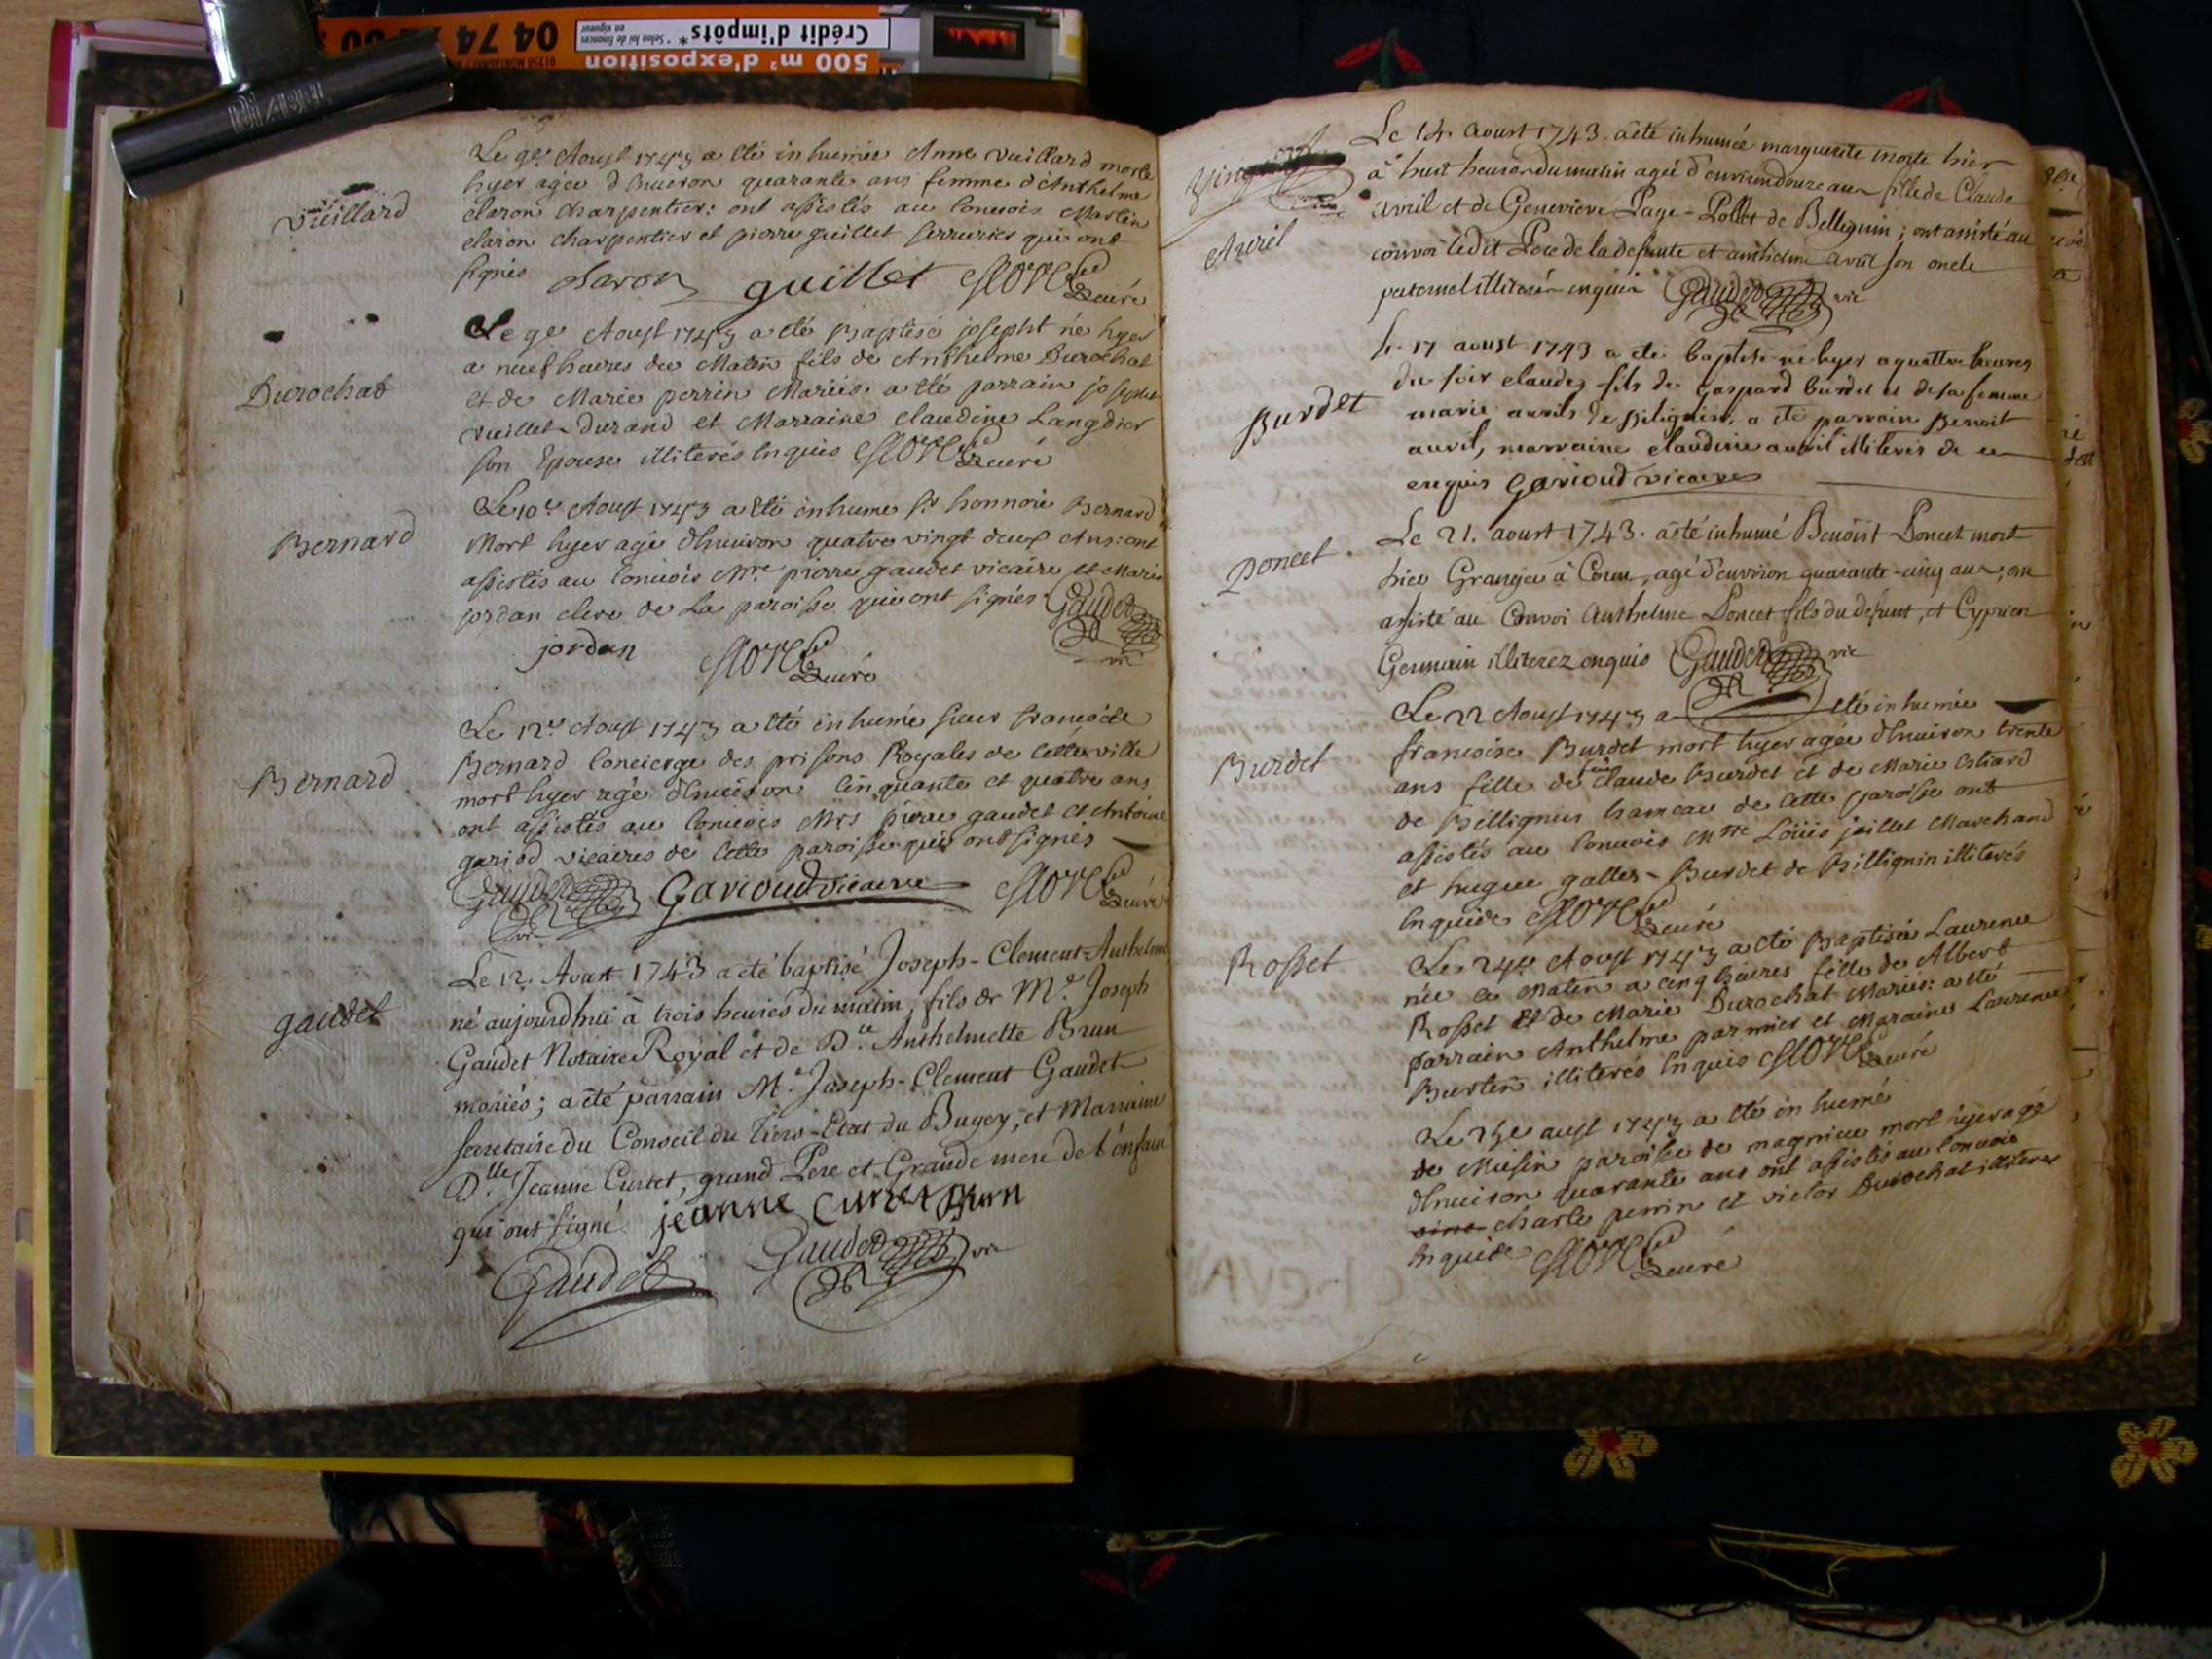 Crédit d'impôts*
Selon loi de finances
en vigueur
500 m² d'exposition
04 74
Vüillard
Le 9e. Aoust 1743 a été inhumée Anne vuillard morte
hyer agée d'Enuiron quarante ans femme d'Anthelme
claron charpentier: ont assistés au Conuois Martin
claron charpentier et pierre guillet serrurier qui ont
signés claron guillet curé
Durochat
Le 9e Aoust 1743 a été Baptisé josepht né hyer
a neuf heures du Matin fils de Anthelme Durochat
et de Marie perrin Mariés. a été parrain josepht
vuillet-durand et Marraine claudine Langdier
son Epouse illiterés Enquis curé
Bernard
Le 10e Aoust 1743 a été inhumé sr honnoré Bernard
Mort hyer agé d'Enuiron quatre vingt deux Ans: ont
assistés au Conuois Mre pierre gaudet vicaire et Marin
jordan clerc de La paroisse qui ont signés Gaudet
jordan curé vic
Bernard
Le 12e Aoust 1743 a été inhumé sieur francois
Bernard Concierge des prisons Royales de Cette ville
mort hyer agé d'Enuiron Cinquante et quatre ans
ont assistés au Conuois Mrs pierre gaudet et Antoine
gariod vicaires de Cette paroisse qui ont signés
Gaudet vic Garioud vicaire curé
gaudet
Le 12. Aoust 1743 a été baptisé Joseph-Clement-Anthelme
né aujourdhui à trois heures du matin, fils de Me. Joseph
Gaudet Notaire Royal et de Dlle. Anthelmette Brun
mariés; a été parrain Me. Joseph-Clement Gaudet
secretaire du Conseil du Tiers-Etat du Bugey, et Marraine
Dlle. Jeanne Curtet, grand Pere et Grande mere de l'enfant
qui ont signé. jeanne curtet Brun
Gaudet Gaudet vic
Avril
Le 14. aoust 1743. a été inhumée marguerite morte hier
à huit heures du matin agée d'environ douze ans fille de Claude
avril et de Genevieve Page-Pollet de Belleguin; ont assisté au
convoi ledit Pere de la defunte et anthelme avril son oncle
paternel illiterés enquis Gaudet vic
Burdet
Le 17 aoust 1743 a été baptisé né hyer a quattre heures
du soir claude, fils de Gaspard burdet et de sa femme
marie avril de Billignin, a été parrain Benoit
avril, marraine claudine avril illiterés de ce
enquis Garioud vicaire
Poncet
Le 21. aoust 1743. a été inhumé Benoist Poncet mort
hier Granger à Coron, agé d'environ quarante-cinq ans, ont
assisté au Convoi Anthelme Poncet fils du defunt, et Cyprien
Germain illiterez enquis Gaudet vic
Burdet
Le 22 Aoust 1743 a été inhumée
francoise Burdet mort hyer agée d'Enuiron trente
ans fille de feu claude Burdet et de Marie
de Billignin hameau de Cette paroisse ont
assistés au Conuois Mtre Loüis juillet Marchand
et hugue galley-Burdet de Billignin illiterés
Enquis curé
Rosset
Le 24e Aoust 1743 a été Baptisée Laurence
née ce Matin a cinq heures fille de Albert
Rosset Et de Marie Durochat Mariés: a été
parrain Anthelme parmier et Maraine Laurence
Burtin illiterés Enquis curé
Le 25e aust 1743 a été inhumé
de Musin paroisse de magnieu mort hyer agé
d'Enuiron quarante ans ont assistés au Conuois
charle perrin et victor Durochat illiterés
Enquis curé